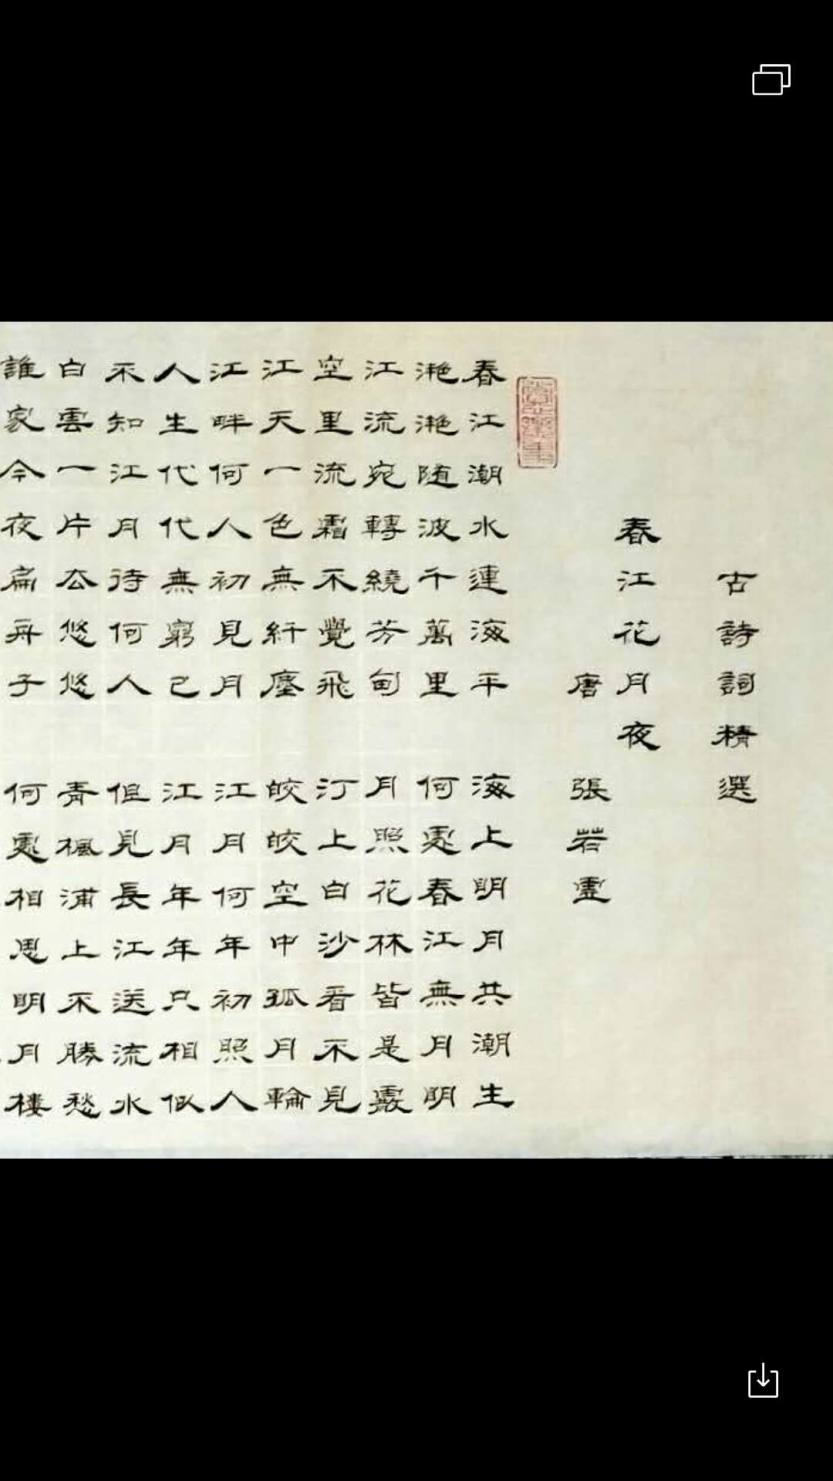 古詩詞精選
春江花月夜
唐 張若虛
春江潮水連海平 海上明月共潮生
滟滟随波千萬里 何處春江無月明
江流宛轉繞芳甸 月照花林皆是霰
空里流霜不覺飛 汀上白沙看不見
江天一色無纤塵 皎皎空中孤月輪
江畔何人初見月 江月何年初照人
人生代代無窮已 江月年年只相似
不知江月待何人 但見長江送流水
白雲一片去悠悠 青楓浦上不勝愁
誰家今夜扁舟子 何處相思明月樓